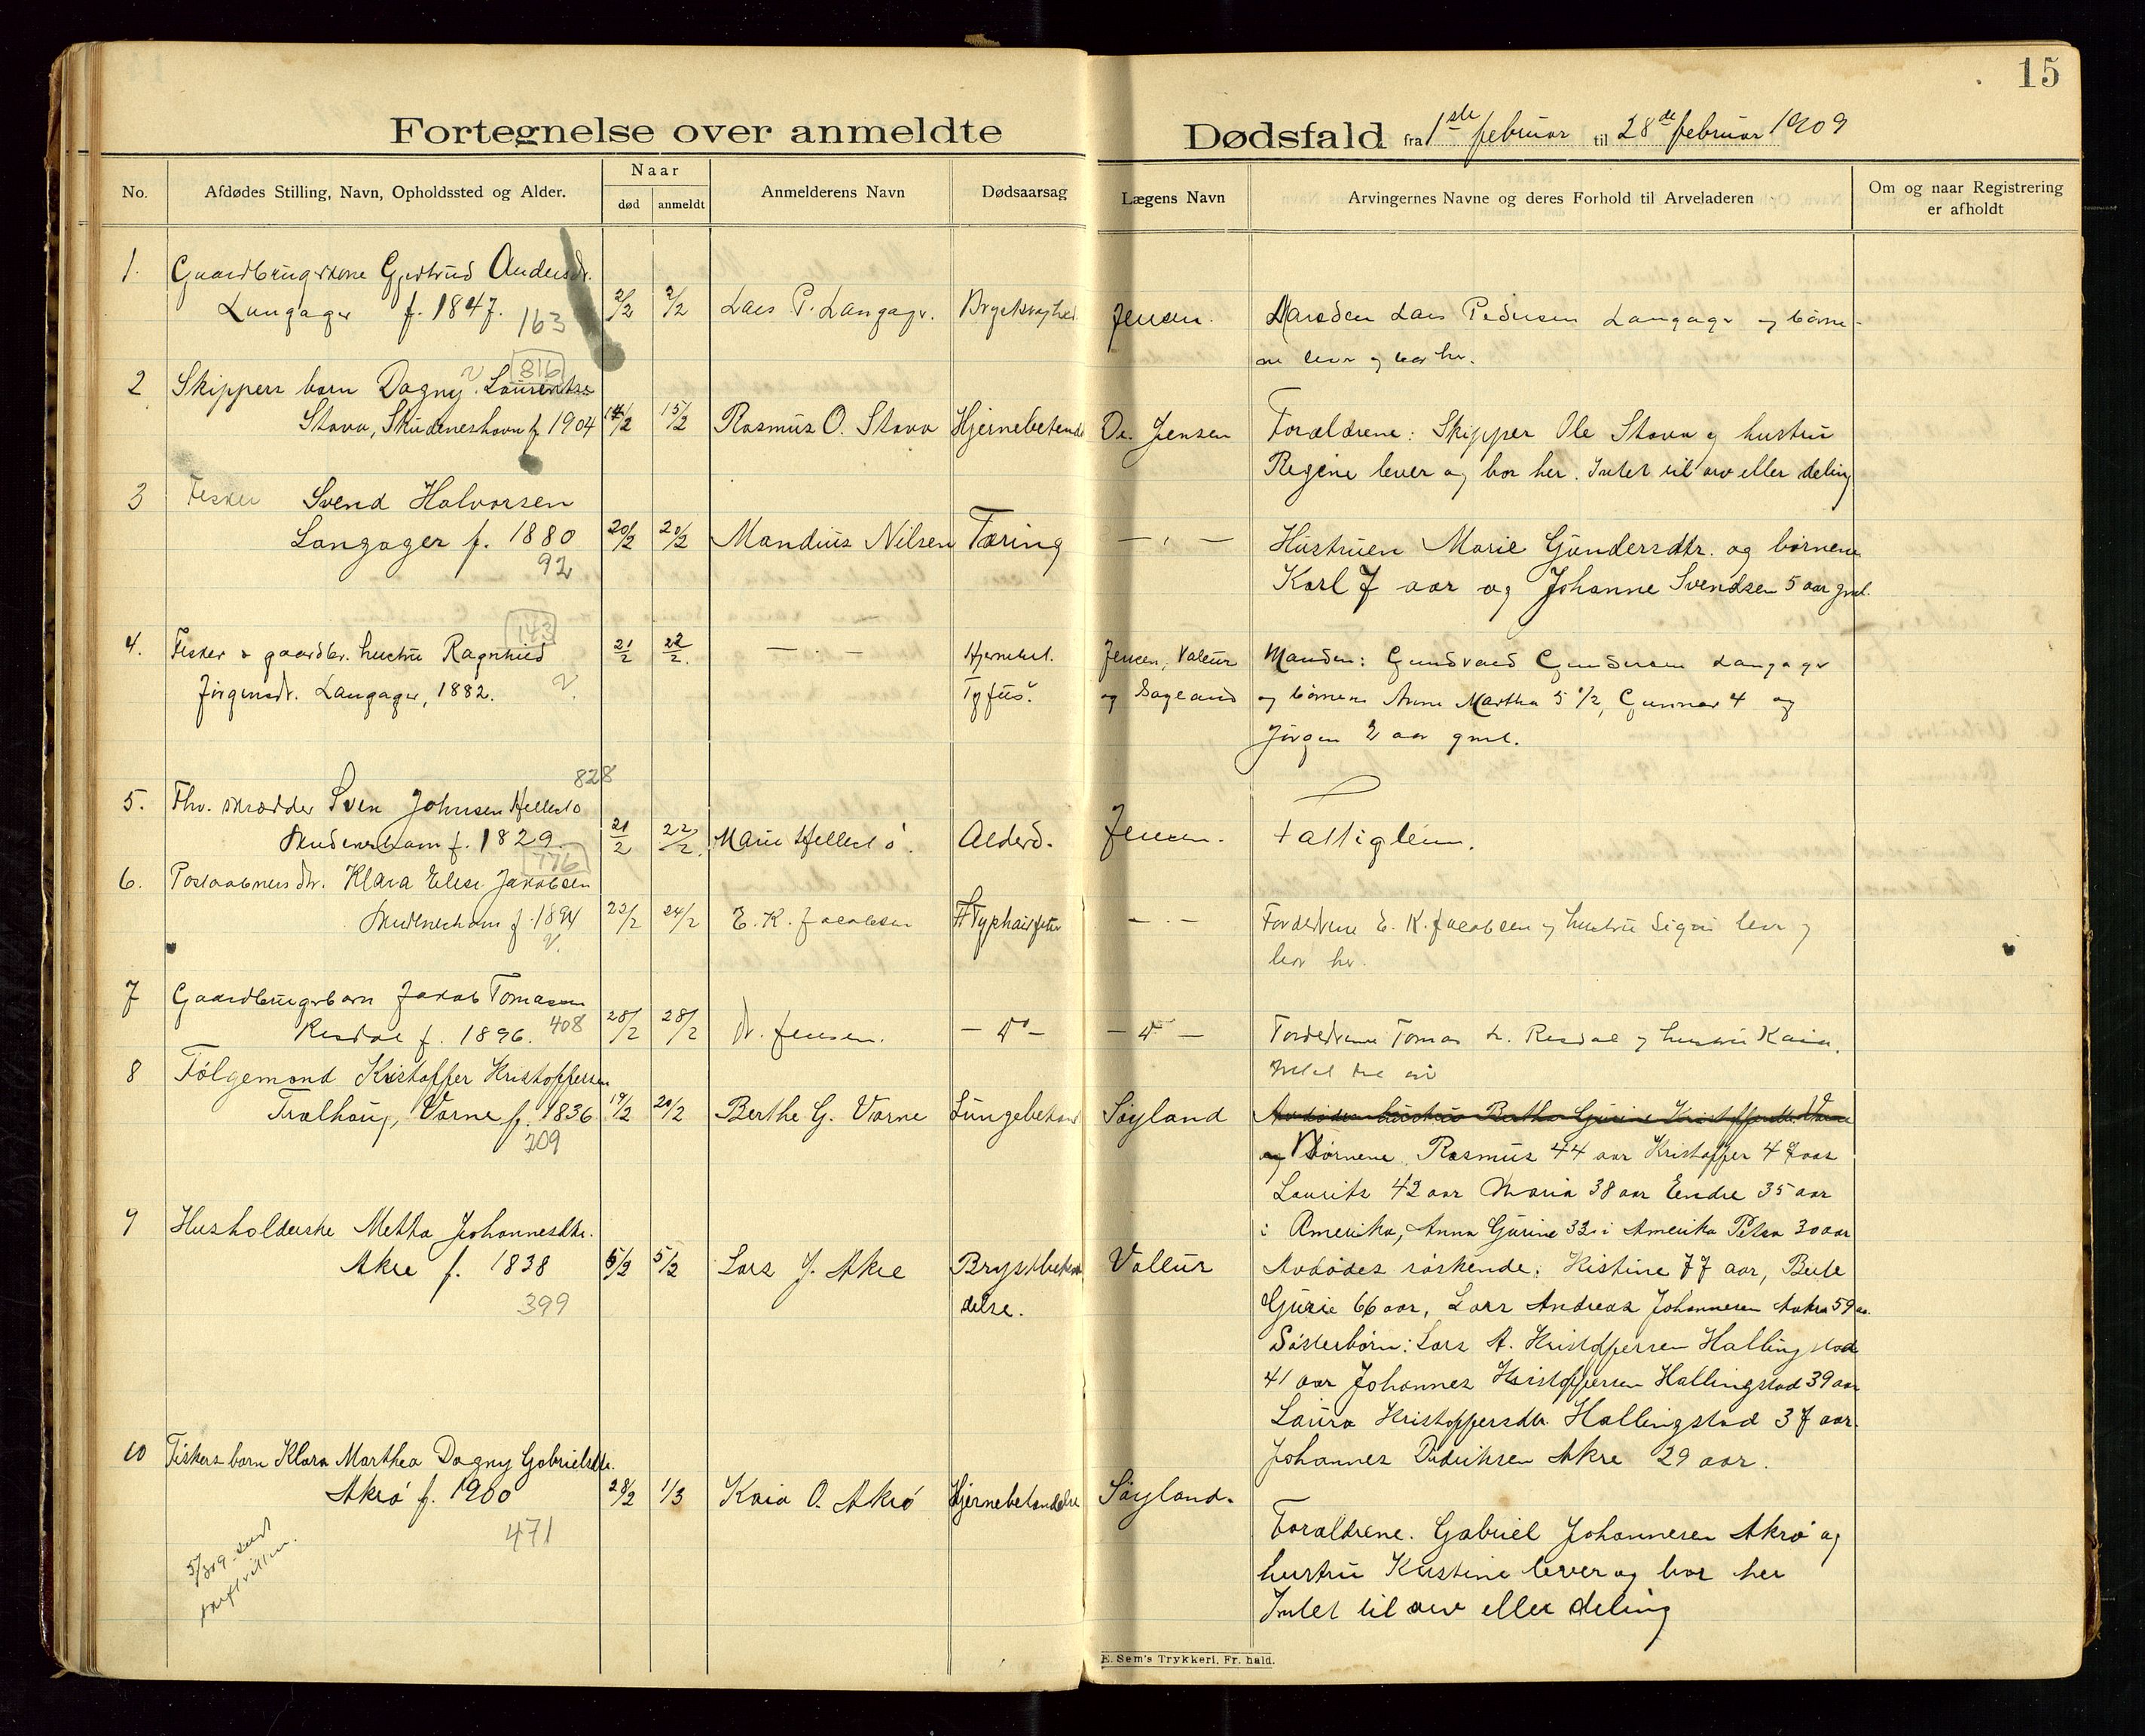 15
Fortegnelse over anmeldte Dødsfald fra 1ste februar til 28de februar 1909
No.
Afdødes Stilling, Navn, Opholdssted og Alder.
Naar
død
anmeldt
Anmelderens Navn
Dødsaarsag
Lægens Navn
Arvingernes Navne og deres Forhold til Arveladeren
Om og naar Registrering
er afholdt
1. Gaardbrugerkone Gjertrud Andersdr.
Langager f. 1847. 163 2/2 2/2 Lars P. Langagr. Jensen.
Manden Lars Pedersen Langager og børne-
ne lever og bor her.
816
2 Skippers barn Dagny Lourentse
Stava, Skudeneshavn f. 1904 14/2 15/2 Rasmus O. Stava Hjernebetend Dr. Jensen
Forældrene: Skipper Ole Stava og hustru
Regine lever og bor her. Intet til arv eller deling
3 Fisker Svend Halvorsen
Langager f. 1880 20/2 20/2 Mandius Nilsen Tæring — " —
92
Hustruen Marie Gundersdtr. og børnene
Karl 7 aar og Johanne Svendsen 5 aar gml.
143
4. Fisker & gaardbr. hustru Ragnhild 21/2 22/2 — " — Hjernebet. Jensen, Valeur
Jørgensdr. Langager, 1882. Tyfus? og Søyland
Manden: Gundvald Gundersen Langager
og børnene Anne Martha 5 1/2, Gunnar 4 og
Jörgen 2 aar gml.
828
5. Fhv. skrædder Sven Johnsen Hellestø
Skudeneshavn f. 1829. 21/2 22/2 Marie Hellestø. Alderd. Jensen. Fattiglem.
776
6. Postaabners dtr. Klara Elise Jakobsen
Skudeneshavn f. 1894 23/2 24/2 E. K. Jacobsen — " —
Forældrene E. K. Jacobsen og hustru Sigri lever og
bor her.
7 Gaardbrugerbarn Jakob Tomasen
Risdal f. 1896. 408 28/2 28/2 Dr. Jensen. — do — — do —
Forældrene Tomas L. Risdal og hustru Kaia.
Intet til arv
8 Følgemand Kristoffer Kristoffersen
Trælhaug, Vorne f. 1836 19/2 20/2 Berthe G. Vorne Lungebetænd Søyland
209
Avdødes hustru Bertha Gurine Kristoffersdtr. Vorne
og Børnene Rasmus 44 aar Kristoffer 47 aar
Laurits 42 aar Maria 38 aar Endre 35 aar
i Amerika, Anna Gurine 33 i Amerika Petra 30 aar
9 Husholderske Metta Johannesdtr.
Akre f. 1838 5/2 5/2 Lars J. Akre Brystbetæn-
delse. Valeur
399
Avdødes søskende: Kistine 77 aar, Berte
Gurie 66 aar, Lars Andreas Johannesen Aakra 59 aa.
Søsterbørn: Lars A. Kristoffersen Hallingstad
41 aar Johannes Kristoffersen Hallingstad 39 aar
Laura Kristoffersdtr. Hallingstad 37 aar.
Johannes Didriksen Akre 29 aar.
10 Fiskers barn Klara Marthea Dagny Gabrielsdtr.
Akrø f. 1900 28/2 1/3 Kaia O. Akrø Hjernebetændelse Søyland.
471
Forældrene. Gabriel Johannesen Akrø og
hustru Kristine lever og bor her
Intet til arv eller deling
5/3 09 sendt
skifteretten.
E. Sem's Trykkeri, Fr.hald.